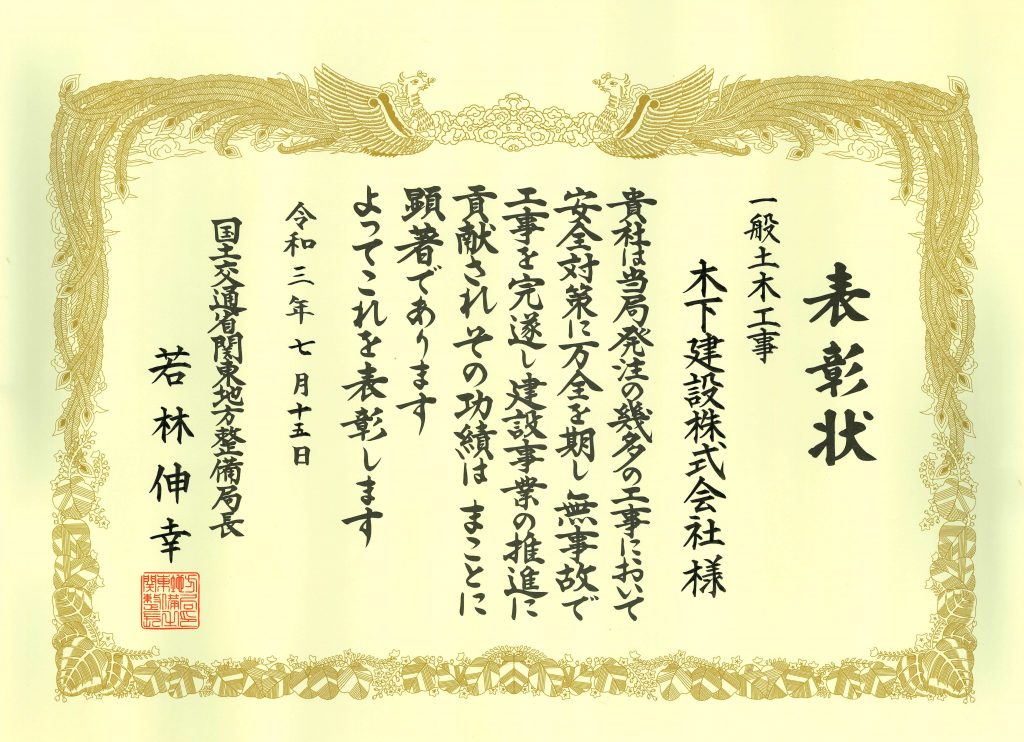 表彰状
一般土木工事
木下建設株式会社様
貴社は当局発注の幾多の工事において
安全対策に万全を期し無事故で
工事を完遂し建設事業の推進に
貢献されその功績はまことに
顕著であります
よってこれを表彰します
令和三年七月十五日
国土交通省関東地方整備局長
若林伸幸